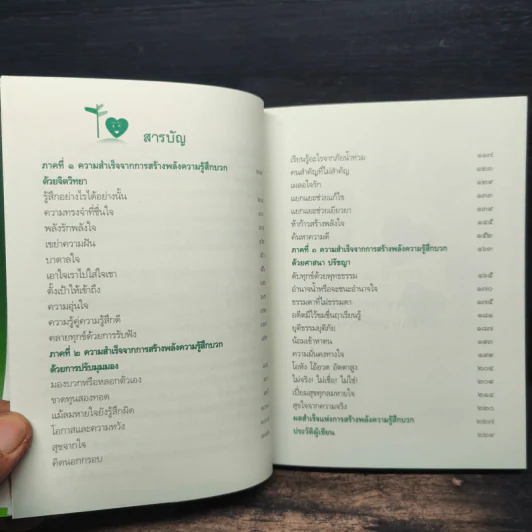 สารบัญ
ภาคที่ ๑ ความสำเร็จจากการสร้างพลังความรู้สึกบวก
ด้วยจิตวิทยา
รู้สึกอย่างไรได้อย่างนั้น
ความทรงจำที่ชื่นใจ
พลังรักพลังใจ
เขย่าความฝัน
บาดาลใจ
เอาใจเราไปใส่ใจเขา
ตั้งเป้าให้เข้าถึง
ความอุ่นใจ
ความรู้คู่ความรู้สึกดี
คลายทุกข์ด้วยการรับฟัง
ภาคที่ ๒ ความสำเร็จจากการสร้างพลังความรู้สึกบวก
ด้วยการปรับมุมมอง
มองบวกหรือหลอกตัวเอง
ขาดทุนสองทอด
แม้ลมหายใจยังรู้สึกผิด
โอกาสและความหวัง
สุขจากใจ
คิดนอกกรอบ
เรียนรู้อะไรจากภัยน้ำท่วม ๑๑๗
คนสำคัญที่ไม่สำคัญ ๑๒๓
เผลอใจรัก ๑๒๙
แยกแยะช่วยแก้ไข ๑๓๓
แยกแยะช่วยเยียวยา ๑๓๙
ห้าก้าวสร้างพลังใจ ๑๔๕
ค้นหาความดี ๑๕๒
ภาคที่ ๓ ความสำเร็จจากการสร้างพลังความรู้สึกบวก ๑๖๓
ด้วยศาสนา ปรัชญา
ดับทุกข์ด้วยพุทธธรรม ๑๖๕
อำนาจน้ำหรือจะชนะอำนาจใจ ๑๗๐
ธรรมดาที่ไม่ธรรมดา ๑๗๕
อดีตมีไว้ชมชื่นฤาเรียนรู้ ๑๘๑
ยุติธรรมยุติภัย ๑๘๗
น้อมเข้าหาตน ๑๙๓
ความมั่นคงทางใจ ๑๙๙
โอหัง โอ้อวด อัตตาสูง ๒๐๔
ไม่จริง! ไม่เชื่อ! ไม่ใช่! ๒๐๘
เปี่ยมสุขทุกลมหายใจ ๒๑๔
สุขใจจากความจริง ๒๒๐
ผลสำเร็จแห่งการสร้างพลังความรู้สึกบวก ๒๒๗
ประวัติผู้เขียน ๒๒๙